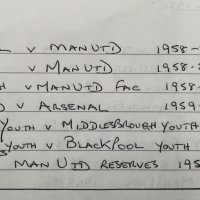 v MAN UTD 1958-
v MAN UTD 1958-
v MAN UTD FAC 1958-
v ARSENAL 1959-
YOUTH v MIDDLESBROUGH YOUTH
YOUTH v BLACKPOOL YOUTH
MAN UTD RESERVES 195